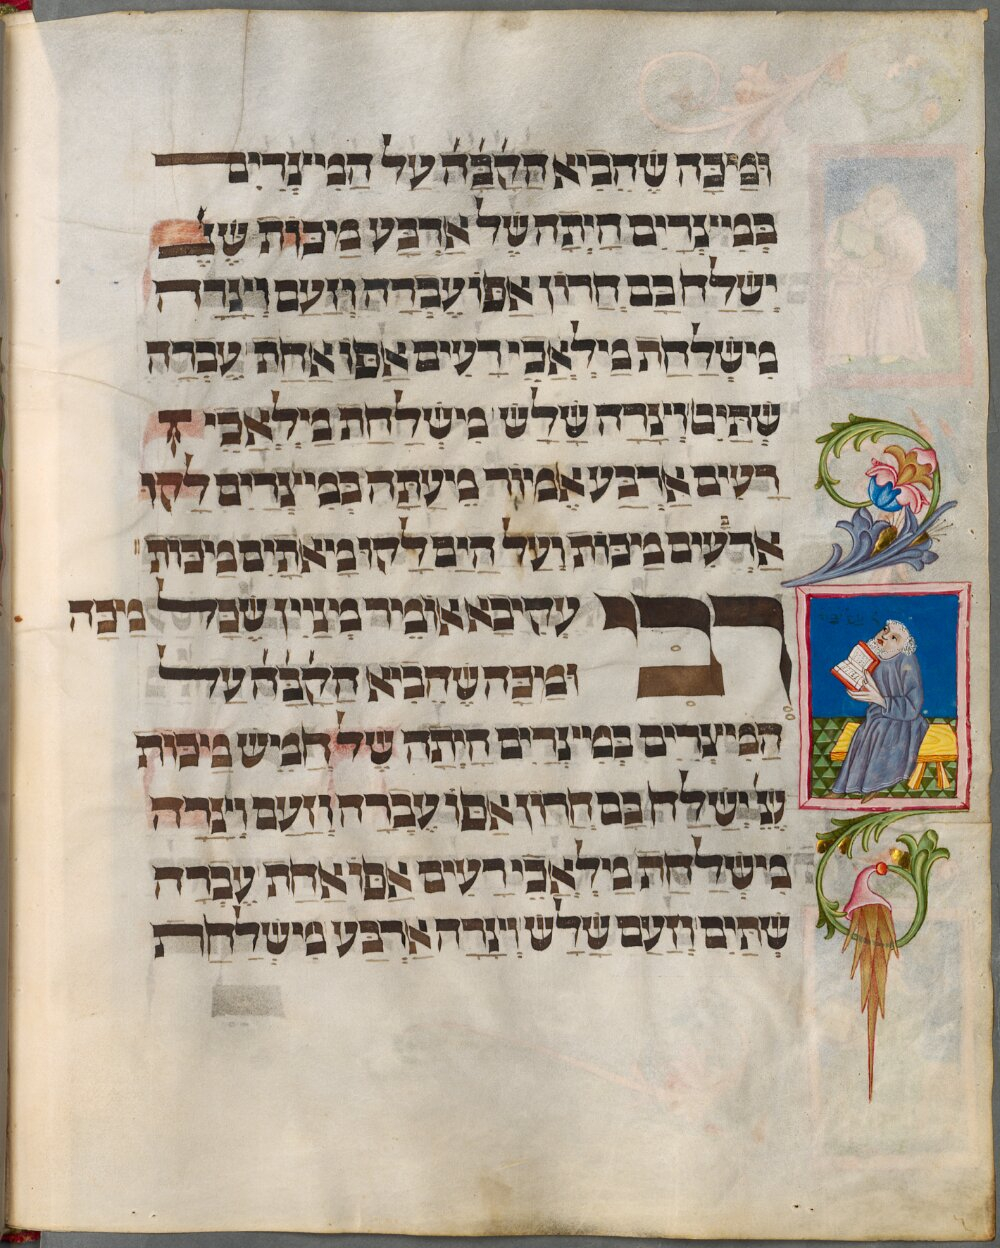 וּמִיכָּה שֶׁהֵבִיא הַקָבָּה עַל הַמִיצְרִים
בְּמִיצְרַיִם הָיְתָה שֶׁל אַרְבַּע מִיכּוֹת שֶׁנֶ
יְשַׁלַח בָּם חֲרוֹן אַפּוֹ עֶבְרָה וָזַעַם וְצָרָה
מִישְׁלַחַת מַלְאֲכֵי רָעִים אַפּוֹ אַחַת עֶבְרָה
שְׁתַּיִם וְצָרָה שָׁלֹשׁ מִישְׁלַחַת מַלְאֲכֵי
רָעִים אַרְבַּע אֱמוֹר מֵעַתָּה בְּמִיצְרַיִם לָקוּ
אַרְבָּעִים מִיכּוֹת וְעַל הַיָם לָקוּ מָאתַיִם מִיכּוֹת
רבי עֲקִיבָא אוֹמֵר מִנַיִין שֶׁכָּל מִיכָּה
וּמִיכָּה שֶׁהֵבִיא הַקָבָּה עַל
הַמִיצְרִים בְּמִיצְרַיִם הָיְתָה שֶׁל חָמֵישׁ מִיכּוֹת
שֶׁנֶ יְשַׁלַח בָּם חֲרוֹן אַפּוֹ עֶבְרָה וָזַעַם וְצָרָה
מִישְׁלַחַת מַלְאֲכֵי רָעִים אַפּוֹ אַחַת עֶבְרָה
שְׁתַּיִם וָזַעַם שָׁלֹשׁ וְצָרָה אַרְבַּע מִישְׁלַחַת